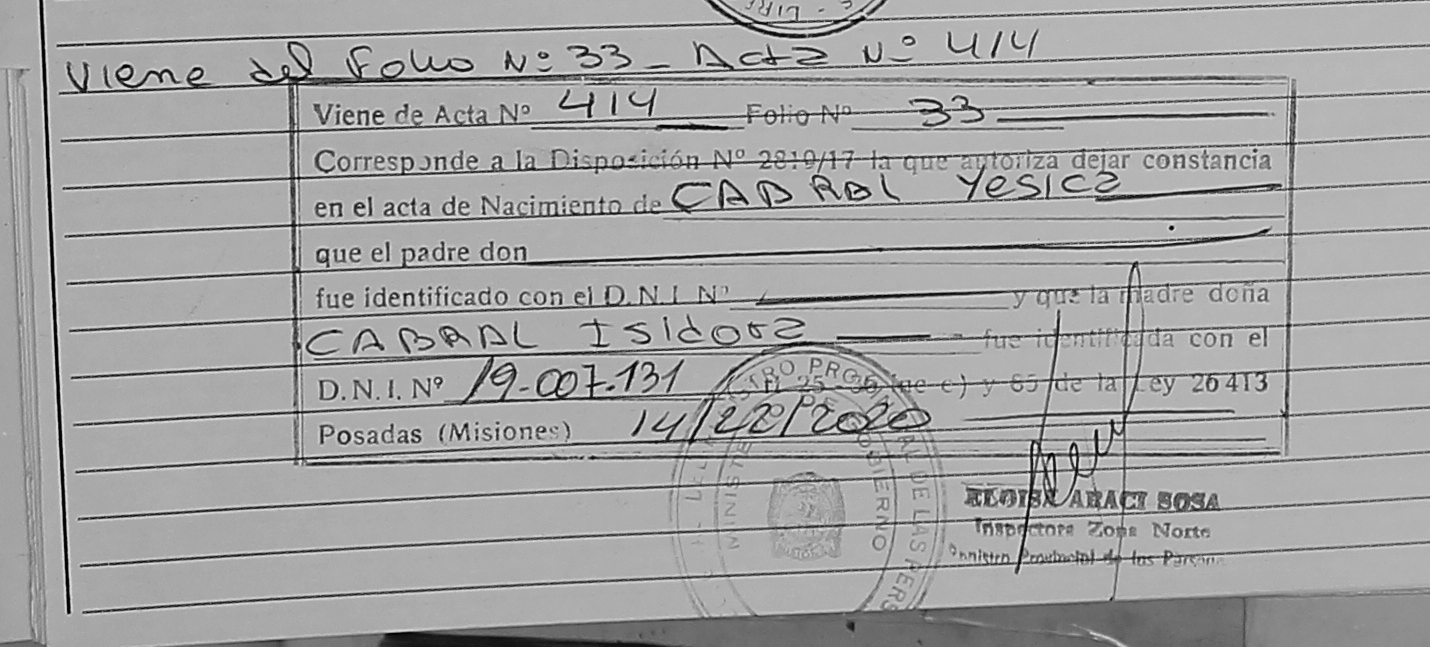 Viene del Folio Nº 33 - Acta Nº 414
Viene de Acta Nº 414 Folio Nº 33
Corresponde a la Disposición Nº 2819/17 la que autoriza dejar constancia
en el acta de Nacimiento de CABRAL Yesica
que el padre don
fue identificado con el D.N.I. Nº y que la madre doña
CABRAL Isidora fue identificada con el
D.N.I. Nº 19.007.131 y 85 de la Ley 26413
Posadas (Misiones) 2020
GOBIERNO
ELOISA ARACI SOSA
Inspectora Zona Norte
Provincial de las